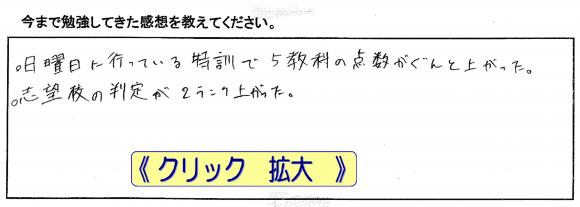 今まで勉強してきた感想を教えてください。
○日曜日に行っている特訓で5教科の点数がぐんと上がった。
○志望校の判定が2ランク上がった。
《クリック 拡大 》